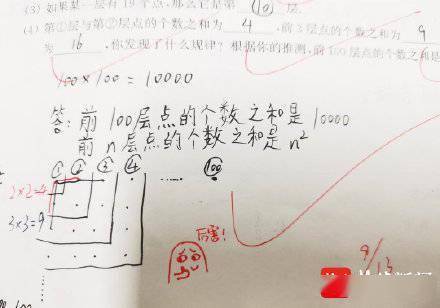 (3) 如果某一层有 19 个点,那么它是第 (10) 层.
(4) 第①层与第②层点的个数之和为 4 ,前 3 层点的个数之和为 9
为 16 ,你发现了什么规律? 根据你的推测,前 100 层点的个数之和是
100×100=10000
答:前100层点的个数之和是10000
前n层点的个数之和是n²
① ② ③ ④ …… 100
2×2=4
3×3=9
厉害!
9/13